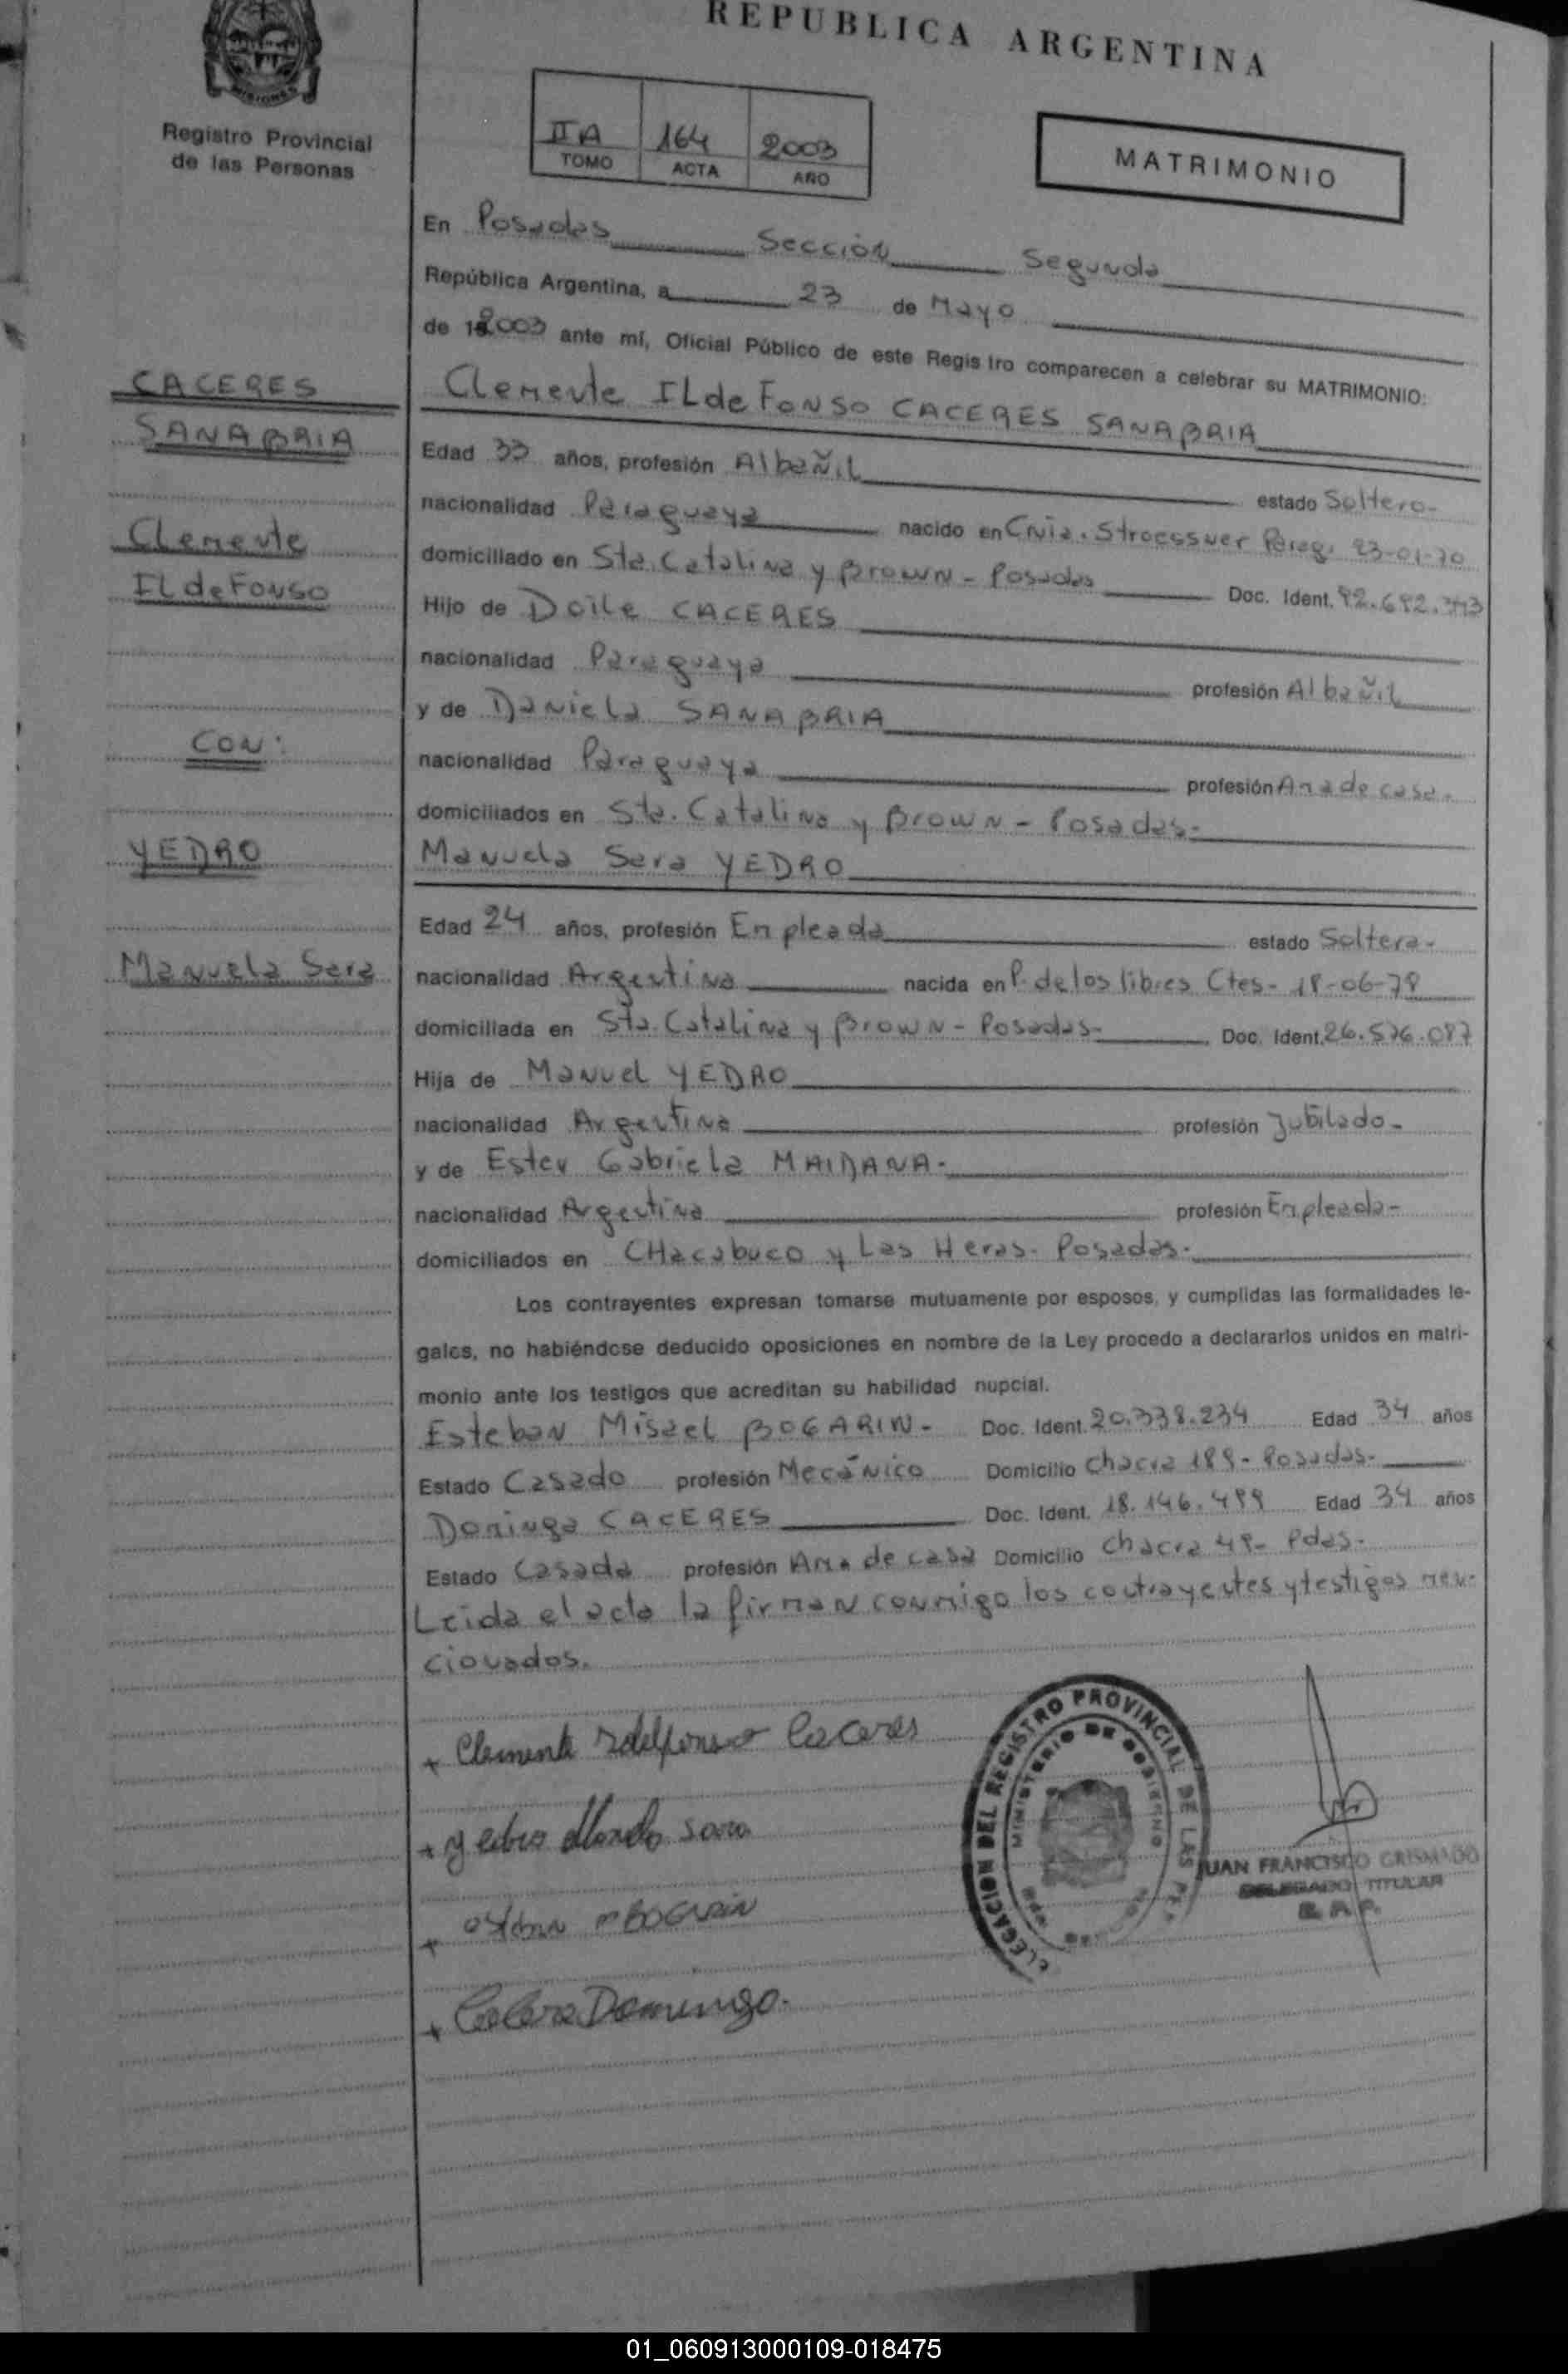 REPUBLICA ARGENTINA
MISIONES
Registro Provincial
de las Personas
II A 164 2003
TOMO ACTA AÑO
MATRIMONIO
En Posadas Sección Segunda
República Argentina, a 23 de Mayo
de 2003 ante mí, Oficial Público de este Registro comparecen a celebrar su MATRIMONIO:
CACERES
SANABRIA
Clemente
ILdeFonso
CON:
YEDRO
Manuela Sara
Clemente ILdeFonso CACERES SANABRIA
Edad 33 años, profesión Albañil estado Soltero-
nacionalidad Paraguaya nacido en Cnia. Stroessner Parag. 23-01-70
domiciliado en Sta. Catalina y Brown - Posadas Doc. Ident.
Hijo de Doile CACERES
nacionalidad Paraguaya profesión Albañil
y de Daniela SANABRIA
nacionalidad Paraguaya profesión Ama de casa-
domiciliados en Sta. Catalina y Brown - Posadas-
Manuela Sara YEDRO
Edad 24 años, profesión Empleada estado Soltera-
nacionalidad Argentina nacida en P. de los libres Ctes- 18-06-78
domiciliada en Sta. Catalina y Brown - Posadas- Doc. Ident. 26.576.087
Hija de Manuel YEDRO
nacionalidad Argentina profesión Jubilado-
y de Ester Gabriela MAIDANA-
nacionalidad Argentina profesión Empleada-
domiciliados en CHacabuco y Las Heras- Posadas-
Los contrayentes expresan tomarse mutuamente por esposos, y cumplidas las formalidades le-
gales, no habiéndose deducido oposiciones en nombre de la Ley procedo a declararlos unidos en matri-
monio ante los testigos que acreditan su habilidad nupcial.
Esteban Misael BOGARIN- Doc. Ident. 20.338.234 Edad 34 años
Estado Casado profesión Mecánico Domicilio Chacra 189- Posadas-
Dominga CACERES Doc. Ident. 18.146.499 Edad 34 años
Estado Casada profesión Ama de casa Domicilio Chacra 49- Pdas-
Leida el acta la firman conmigo los contrayentes y testigos men-
cionados.
+ Clemente Ildelfonso Caceres
+ yedro Manuela Sara
+ Esteban M BOGARIN
+ Caceres Dominga.
DELEGACION DEL REGISTRO PROVINCIAL DE LAS PE
MINISTERIO DE GOBIERNO
JUAN FRANCISCO GRISMADO
DELEGADO TITULAR
01_060913000109-018475